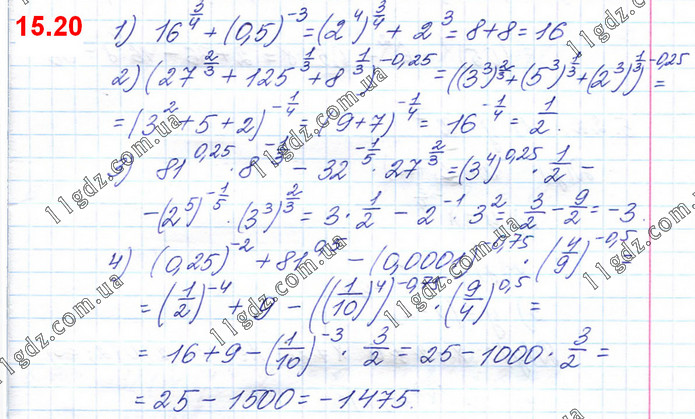 15.20
1) 16^(3/4) + (0,5)^(-3) = (2^4)^(3/4) + 2^3 = 8 + 8 = 16
2) (27^(2/3) + 125^(1/3) + 8^(1/3))^(-0,25) = ((3^3)^(2/3) + (5^3)^(1/3) + (2^3)^(1/3))^(-0,25) =
= (3^2 + 5 + 2)^(-1/4) = (9 + 7)^(-1/4) = 16^(-1/4) = 1/2.
3) 81^(0,25) · 8^(-1/3) − 32^(-1/5) · 27^(2/3) = (3^4)^(0,25) · 1/2 −
− (2^5)^(-1/5) · (3^3)^(2/3) = 3 · 1/2 − 2^(-1) · 3^2 = 3/2 − 9/2 = −3.
4) (0,25)^(-2) + 81^(0,5) − (0,0001)^(-0,75) · (4/9)^(-0,5) =
= (1/2)^(-4) + 9 − ((1/10)^4)^(-0,75) · (9/4)^(0,5) =
= 16 + 9 − (1/10)^(-3) · 3/2 = 25 − 1000 · 3/2 =
= 25 − 1500 = −1475.
11gdz.com.ua
11gdz.com.ua
11gdz.com.ua
11gdz.com.ua
11gdz.com.ua
11gdz.com.ua